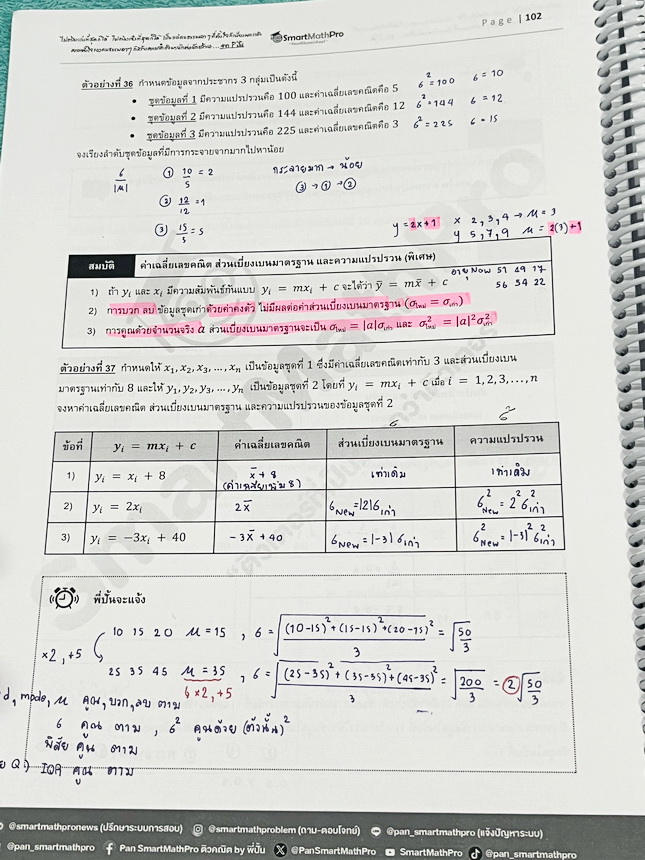 SmartMathPro
Page | 102
ตัวอย่างที่ 36 กำหนดข้อมูลจากประชากร 3 กลุ่มเป็นดังนี้
• ชุดข้อมูลที่ 1 มีความแปรปรวนคือ 100 และค่าเฉลี่ยเลขคณิตคือ 5 6² = 100 6 = 10
• ชุดข้อมูลที่ 2 มีความแปรปรวนคือ 144 และค่าเฉลี่ยเลขคณิตคือ 12 6² = 144 6 = 12
• ชุดข้อมูลที่ 3 มีความแปรปรวนคือ 225 และค่าเฉลี่ยเลขคณิตคือ 3 6² = 225 6 = 15
จงเรียงลำดับชุดข้อมูลที่มีการกระจายจากมากไปหาน้อย
6/|M| ① 10/5 = 2 กระจายมาก → น้อย
② 12/12 = 1 ③ → ① → ②
③ 15/3 = 5
y = 2x+1 x 2,3,4 → M = 3
y 5,7,9 M = 2(3)+1
สมบัติ ค่าเฉลี่ยเลขคณิต ส่วนเบี่ยงเบนมาตรฐาน และความแปรปรวน (พิเศษ)
อายุ Now 51 49 17
1) ถ้า yᵢ และ xᵢ มีความสัมพันธ์กันแบบ yᵢ = mxᵢ + c จะได้ว่า ȳ = mx̄ + c
56 54 22
2) การบวก ลบ ข้อมูลชุดเก่าด้วยค่าคงตัว ไม่มีผลต่อค่าส่วนเบี่ยงเบนมาตรฐาน (σใหม่ = σเก่า)
3) การคูณด้วยจำนวนจริง a ส่วนเบี่ยงเบนมาตรฐานจะเป็น σใหม่ = |a|σเก่า และ σ²ใหม่ = |a|²σ²เก่า
ตัวอย่างที่ 37 กำหนดให้ x₁, x₂, x₃, ..., xₙ เป็นข้อมูลชุดที่ 1 ซึ่งมีค่าเฉลี่ยเลขคณิตเท่ากับ 3 และส่วนเบี่ยงเบน
มาตรฐานเท่ากับ 8 และให้ y₁, y₂, y₃, ..., yₙ เป็นข้อมูลชุดที่ 2 โดยที่ yᵢ = mxᵢ + c เมื่อ i = 1, 2, 3, ..., n
จงหาค่าเฉลี่ยเลขคณิต ส่วนเบี่ยงเบนมาตรฐาน และความแปรปรวนของข้อมูลชุดที่ 2
6 6²
ข้อที่ yᵢ = mxᵢ + c ค่าเฉลี่ยเลขคณิต ส่วนเบี่ยงเบนมาตรฐาน ความแปรปรวน
1) yᵢ = xᵢ + 8 x̄ + 8 เท่าเดิม เท่าเดิม
(ค่าเฉลี่ยเพิ่ม 8)
2) yᵢ = 2xᵢ 2x̄ 6New = |2|6เก่า 6²New = 2²6²เก่า
3) yᵢ = −3xᵢ + 40 −3x̄ + 40 6New = |−3|6เก่า 6²New = |−3|²6²เก่า
พี่ปั้นจะแจ้ง
10 15 20 M = 15 , 6 = √((10−15)²+(15−15)²+(20−15)²/3) = √(50/3)
×2, +5
25 35 45 M = 35 , 6 = √((25−35)²+(35−35)²+(45−35)²/3) = √(200/3) = 2√(50/3)
6 ×2, +5
d, mode, M คูณ, บวก, ลบ ตาม
6 คูณ ตาม , 6² คูณด้วย (ตัวนั้น)²
พิสัย คูณ ตาม
Q₁) IQR คูณ ตาม
@smartmathpronews (ปรึกษาระบบการสอบ) @smartmathproblem (ถาม-ตอบโจทย์) @pan_smartmathpro (แจ้งปัญหาระบบ)
@pan_smartmathpro Pan SmartMathPro ติวคณิต by พี่ปั้น @PanSmartMathPro SmartMathPro @pan_smartmathpro